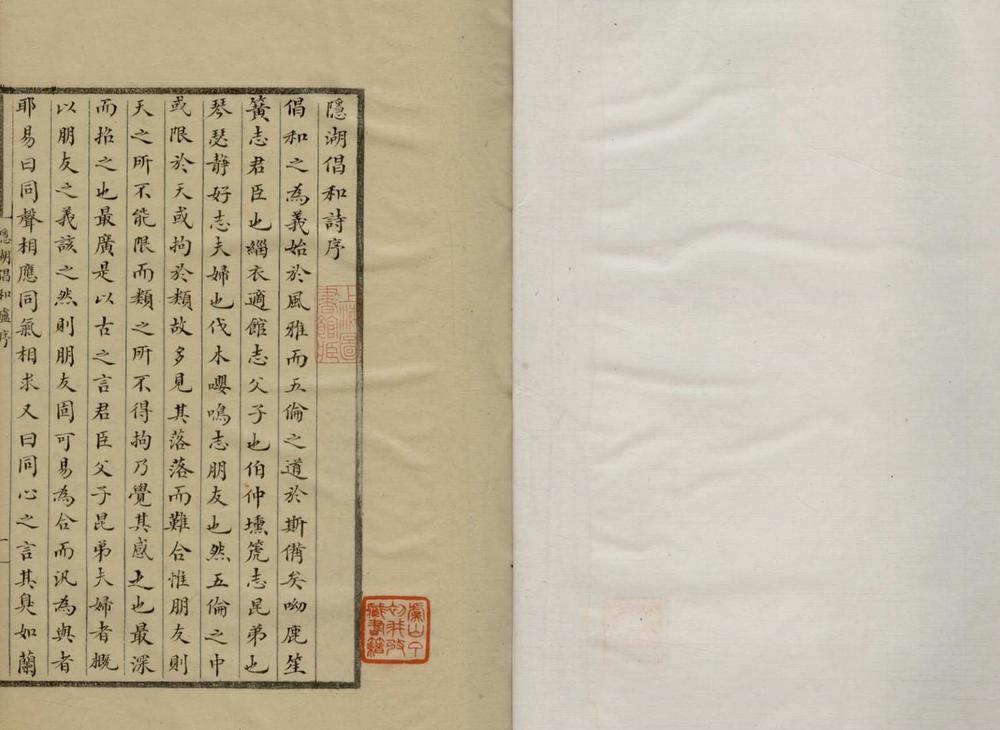 隱湖倡和詩序
倡和之為義始於風雅而五倫之道於斯備矣呦鹿笙
簧志君臣也緇衣適館志父子也伯仲壎箎志昆弟也
琴瑟静好志夫婦也伐木嚶鳴志朋友也然五倫之中
或限於天或拘於類故多見其落落而難合惟朋友則
天之所不能限而類之所不得拘乃覺其感之也最深
而招之也最廣是以古之言君臣父子昆弟夫婦者概
以朋友之義該之然則朋友固可易為合而汎為與者
耶易曰同聲相應同氣相求又曰同心之言其臭如蘭
隱湖倡和 序
一
上海圖書館藏
虞山丁初我攷藏書籍